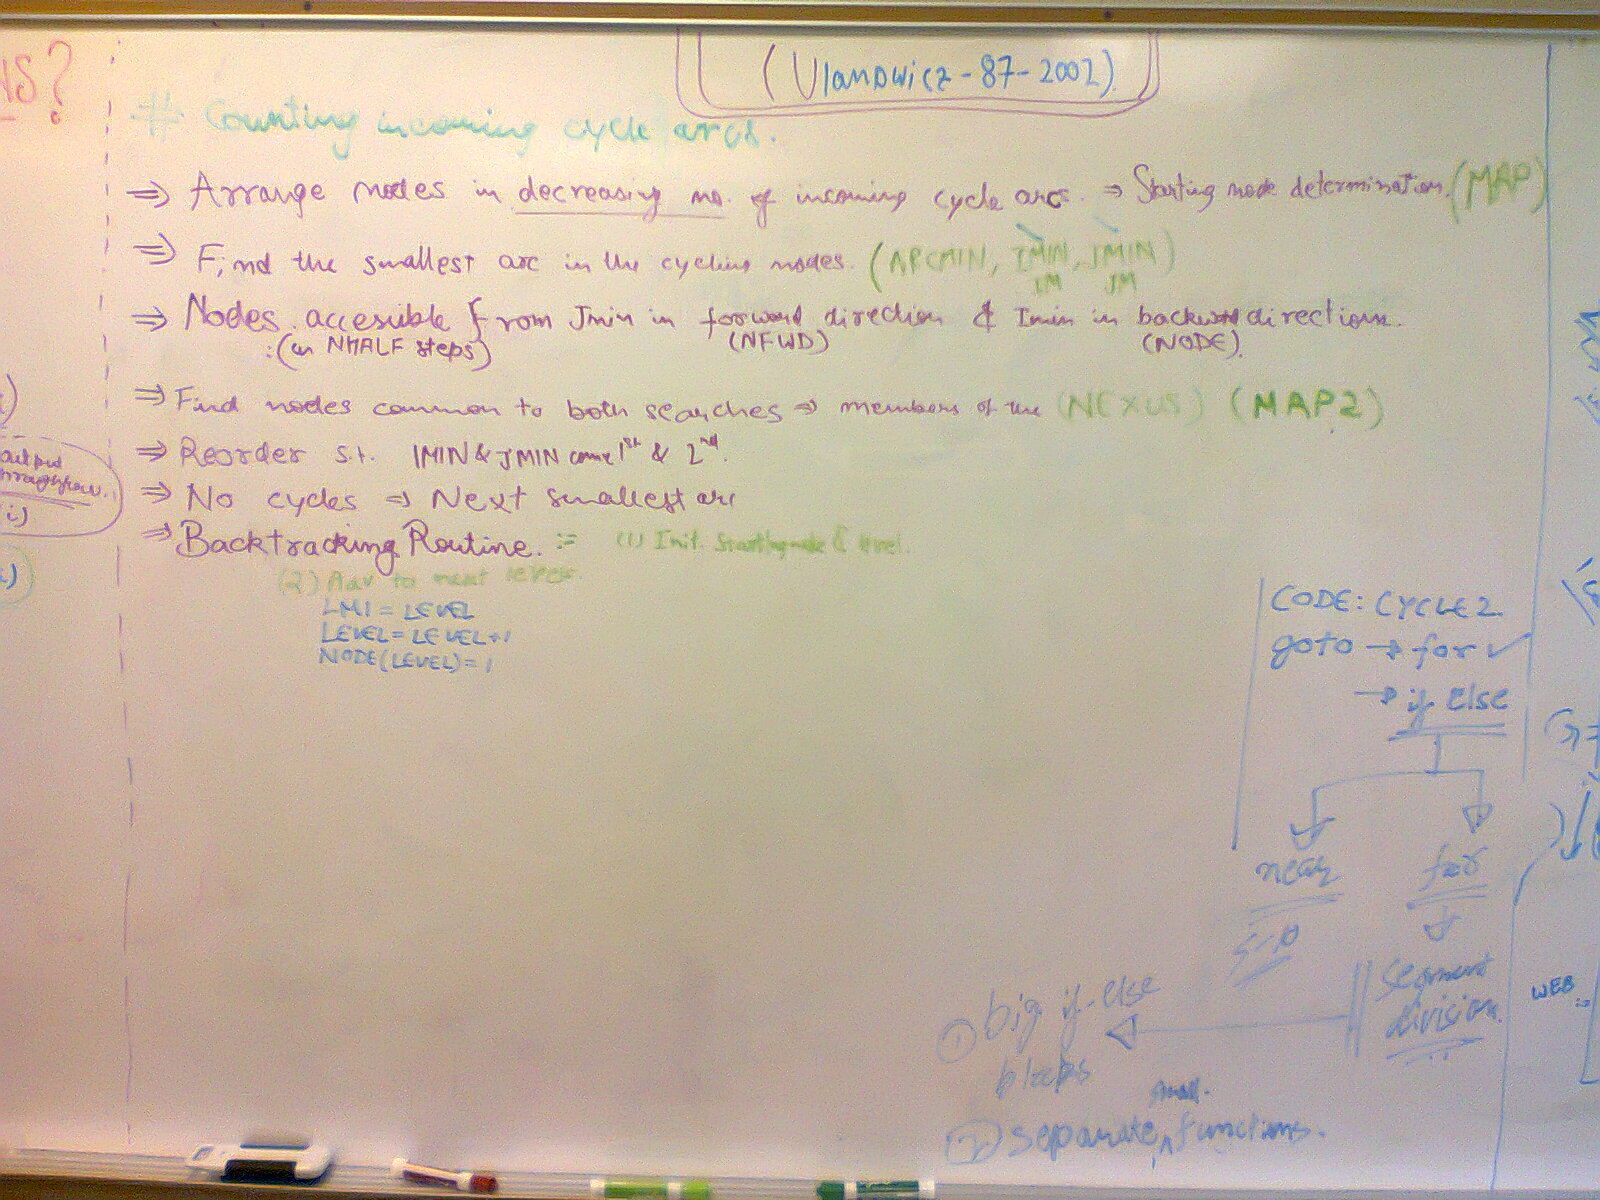 NS?
(Ulanowicz-87-2002)
# Counting incoming cycle arcs.
⇒ Arrange nodes in decreasing no. of incoming cycle arcs. ⇒ Starting node determination. (MAP)
⇒ Find the smallest arc in the cycling nodes. (ARCMIN, IMIN, JMIN)
IM JM
⇒ Nodes accesible from Jmin in forward direction & Imin in backward direction.
:(in NHALF steps) (NFWD) (NODE).
⇒ Find nodes common to both searches ⇒ members of the (NEXUS) (MAP2)
⇒ Reorder s.t. IMIN & JMIN come 1st & 2nd.
⇒ No cycles ⇒ Next smallest arc
⇒ Backtracking Routine. := (1) Init. Starting node & level.
(2) Adv to next level.
LM1 = LEVEL
LEVEL = LEVEL+1
NODE(LEVEL) = 1
CODE: CYCLE2
goto → for ✓
→ if else
near far
segment
division
① big if-else
② separate small functions.
WEB